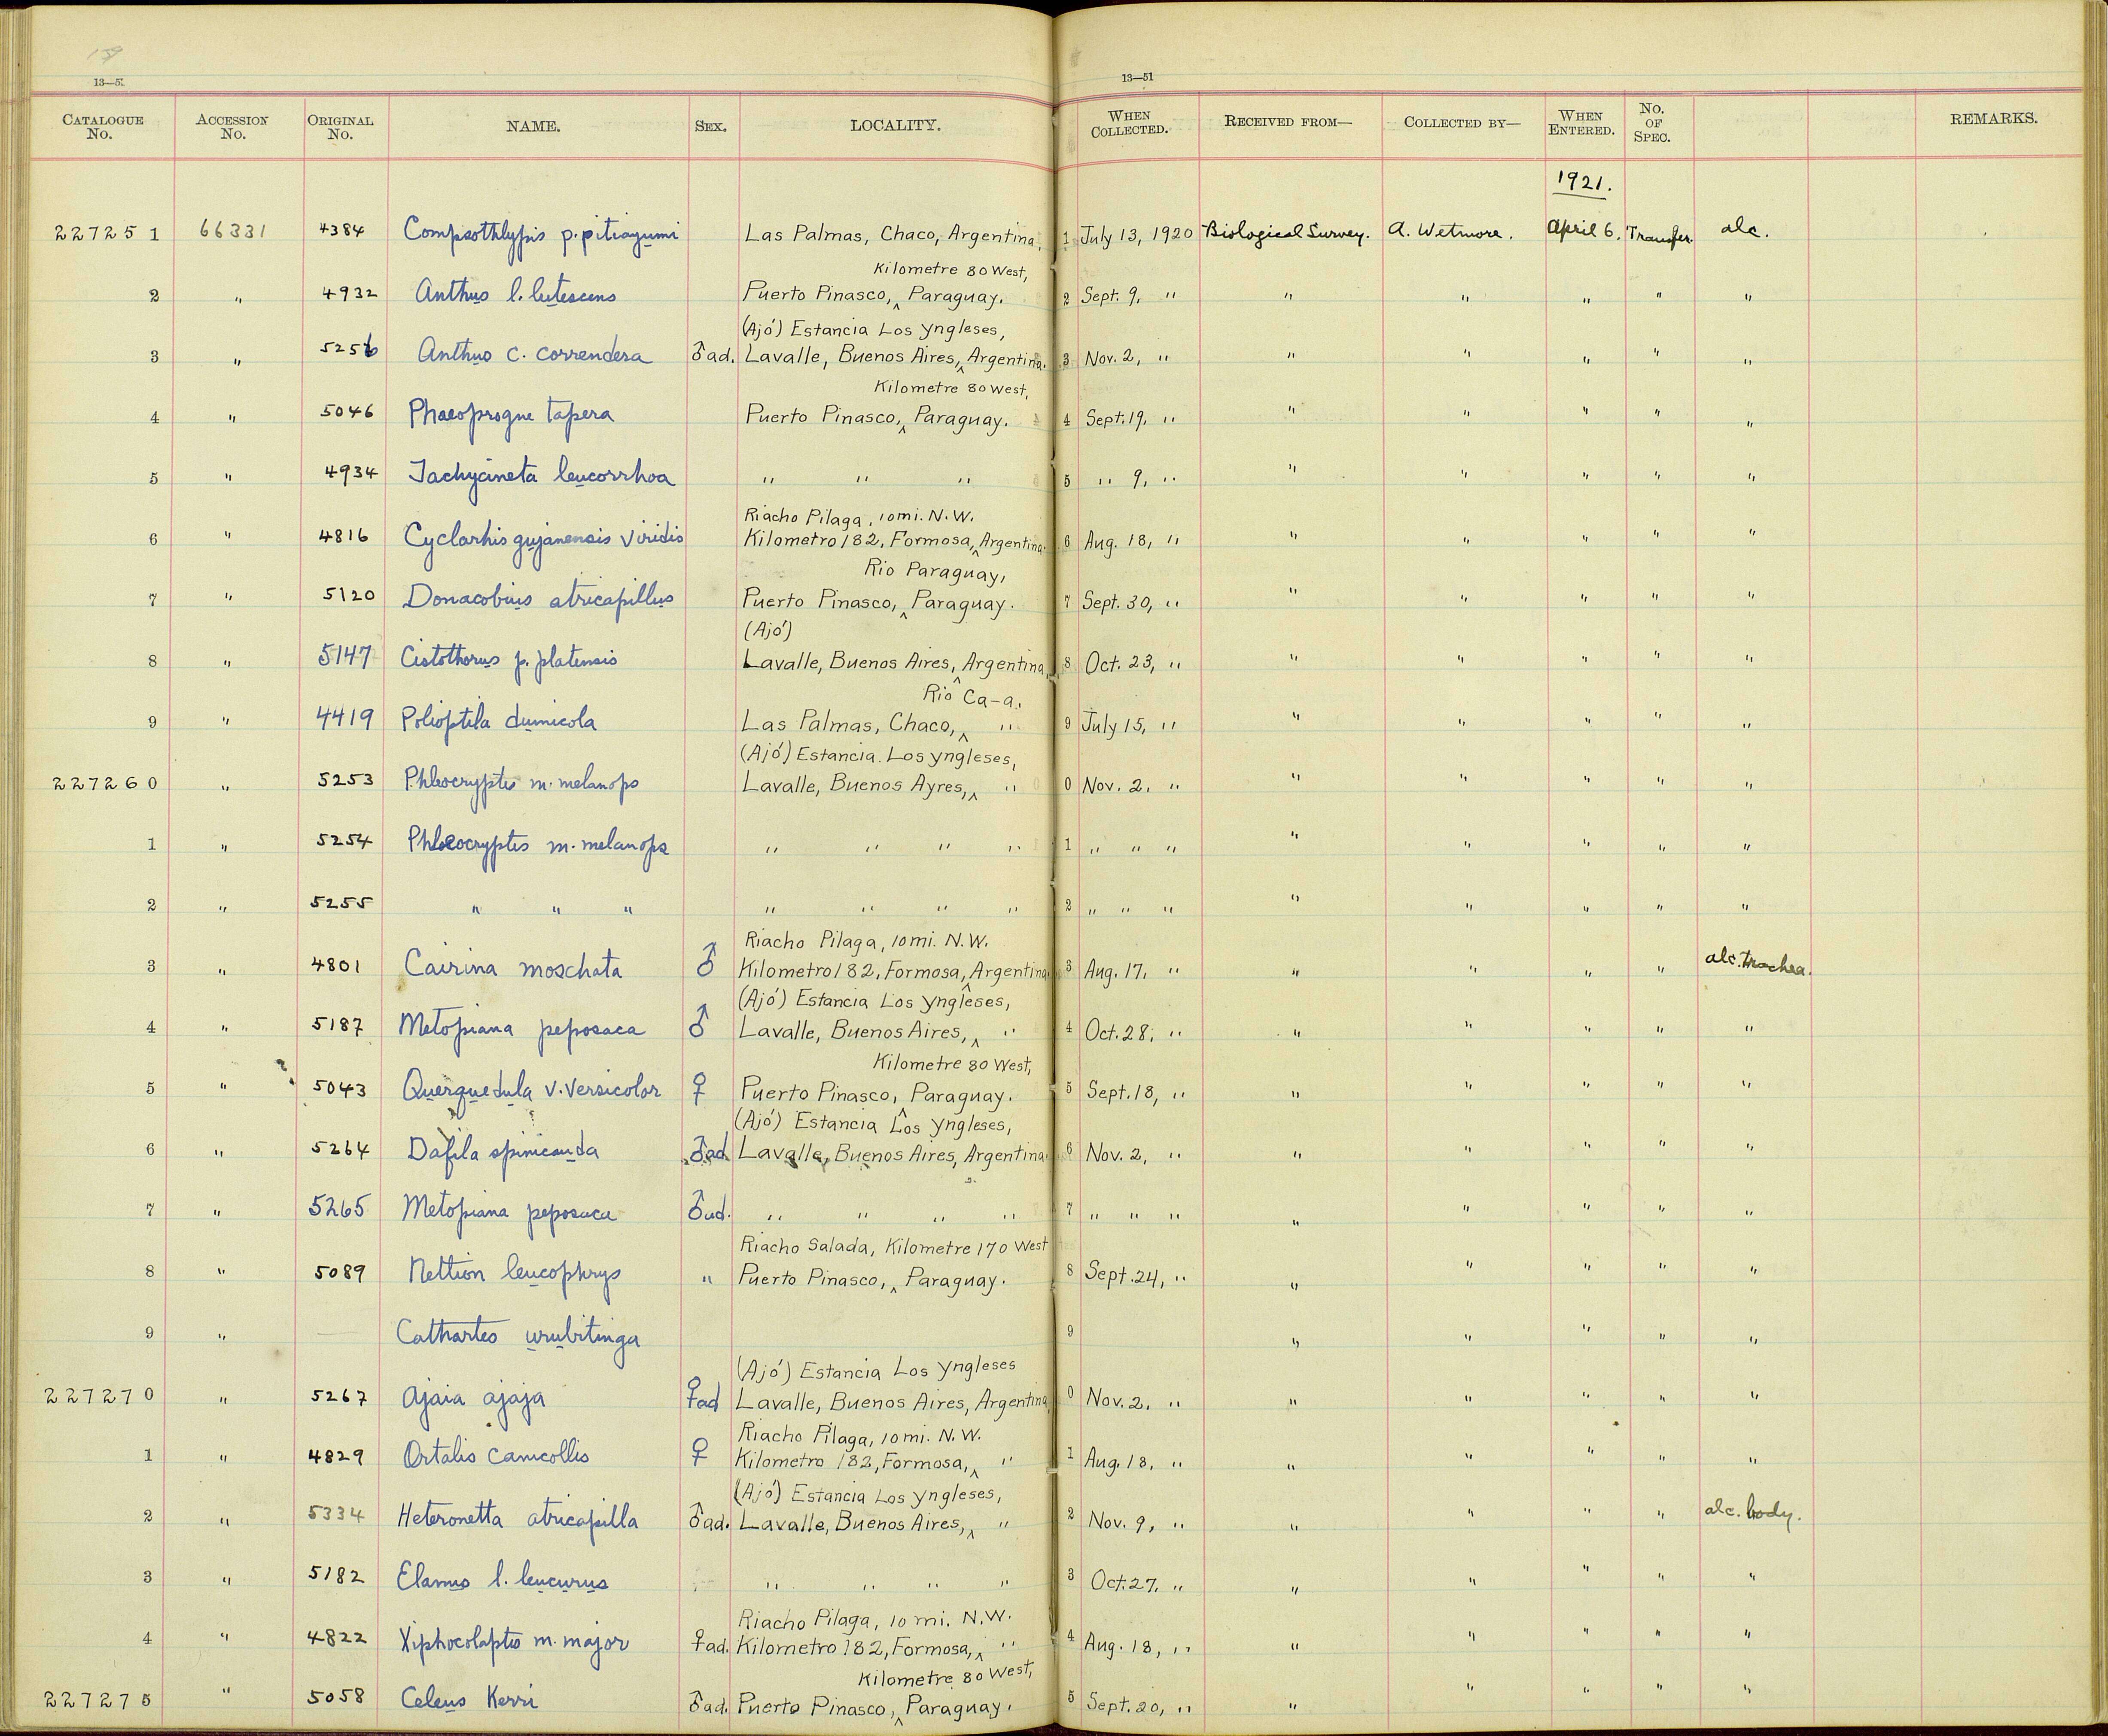 13—51
13—51
CATALOGUE No. ACCESSION No. ORIGINAL No. NAME. SEX. LOCALITY. WHEN COLLECTED. RECEIVED FROM— COLLECTED BY— WHEN ENTERED. No. OF SPEC. REMARKS.
1921.
227251 66331 4384 Compsothlypis p. pitiayumi Las Palmas, Chaco, Argentina. 1 July 13, 1920 Biological Survey. A. Wetmore. April 6. Transfer. alc.
Kilometre 80 West,
2 " 4932 Anthus l. lutescens Puerto Pinasco, ^ Paraguay. 2 Sept. 9, " " " " " "
(Ajó) Estancia Los Yngleses,
3 " 5256 Anthus c. correndera ♂ad. Lavalle, Buenos Aires, ^ Argentina. 3 Nov. 2, " " " " " "
Kilometre 80 West,
4 " 5046 Phaeoprogne tapera Puerto Pinasco, ^ Paraguay. 4 Sept. 19, " " " " " "
5 " 4934 Tachycineta leucorrhoa " " " 5 " 9, " " " " " "
Riacho Pilaga, 10 mi. N.W.
6 " 4816 Cyclarhis gujanensis viridis Kilometro 182, Formosa, ^ Argentina. 6 Aug. 18, " " " " " "
Rio Paraguay,
7 " 5120 Donacobius atricapillus Puerto Pinasco, ^ Paraguay. 7 Sept. 30, " " " " " "
(Ajó)
8 " 5147 Cistothorus p. platensis Lavalle, Buenos Aires, ^ Argentina. 8 Oct. 23, " " " " " "
Rio Ca-a,
9 " 4419 Polioptila dumicola Las Palmas, Chaco, ^ " 9 July 15, " " " " " "
(Ajó) Estancia Los Yngleses,
227260 " 5253 Phleocryptes m. melanops Lavalle, Buenos Ayres, ^ " 0 Nov. 2, " " " " " "
1 " 5254 Phleocryptes m. melanops " " " " 1 " " " " " " " "
2 " 5255 " " " " " " " 2 " " " " " " " "
Riacho Pilaga, 10 mi. N.W.
3 " 4801 Cairina moschata ♂ Kilometro 182, Formosa, ^ Argentina. 3 Aug. 17, " " " " " alc. trachea.
(Ajó) Estancia Los Yngleses,
4 " 5187 Metopiana peposaca ♂ Lavalle, Buenos Aires, ^ " 4 Oct. 28, " " " " " "
Kilometre 80 West,
5 " 5043 Querquedula v. versicolor ♀ Puerto Pinasco, ^ Paraguay. 5 Sept. 18, " " " " " "
(Ajó) Estancia Los Yngleses,
6 " 5264 Dafila spinicauda ♂ad. Lavalle, Buenos Aires, Argentina. 6 Nov. 2, " " " " " "
7 " 5265 Metopiana peposaca ♂ad. " " " " 7 " " " " " " " "
Riacho Salada, Kilometre 170 West
8 " 5089 Nettion leucophrys " Puerto Pinasco, ^ Paraguay. 8 Sept. 24, " " " " " "
9 " — Cathartes urubitinga 9 " " " " "
(Ajó) Estancia Los Yngleses
227270 " 5267 Ajaia ajaja ♀ad Lavalle, Buenos Aires, Argentina. 0 Nov. 2, " " " " " "
Riacho Pilaga, 10 mi. N.W.
1 " 4829 Ortalis canicollis ♀ Kilometro 182, Formosa, ^ " 1 Aug. 18, " " " " " "
(Ajó) Estancia Los Yngleses,
2 " 5334 Heteronetta atricapilla ♂ad. Lavalle, Buenos Aires, ^ " 2 Nov. 9, " " " " " alc. body.
3 " 5182 Elanus l. leucurus " " " " 3 Oct. 27, " " " " " "
Riacho Pilaga, 10 mi. N.W.
4 " 4822 Xiphocolaptes m. major ♀ad. Kilometro 182, Formosa, ^ " 4 Aug. 18, " " " " " "
Kilometre 80 West,
227275 " 5058 Celeus Kerri ♂ad. Puerto Pinasco, ^ Paraguay. 5 Sept. 20, " " " " " "